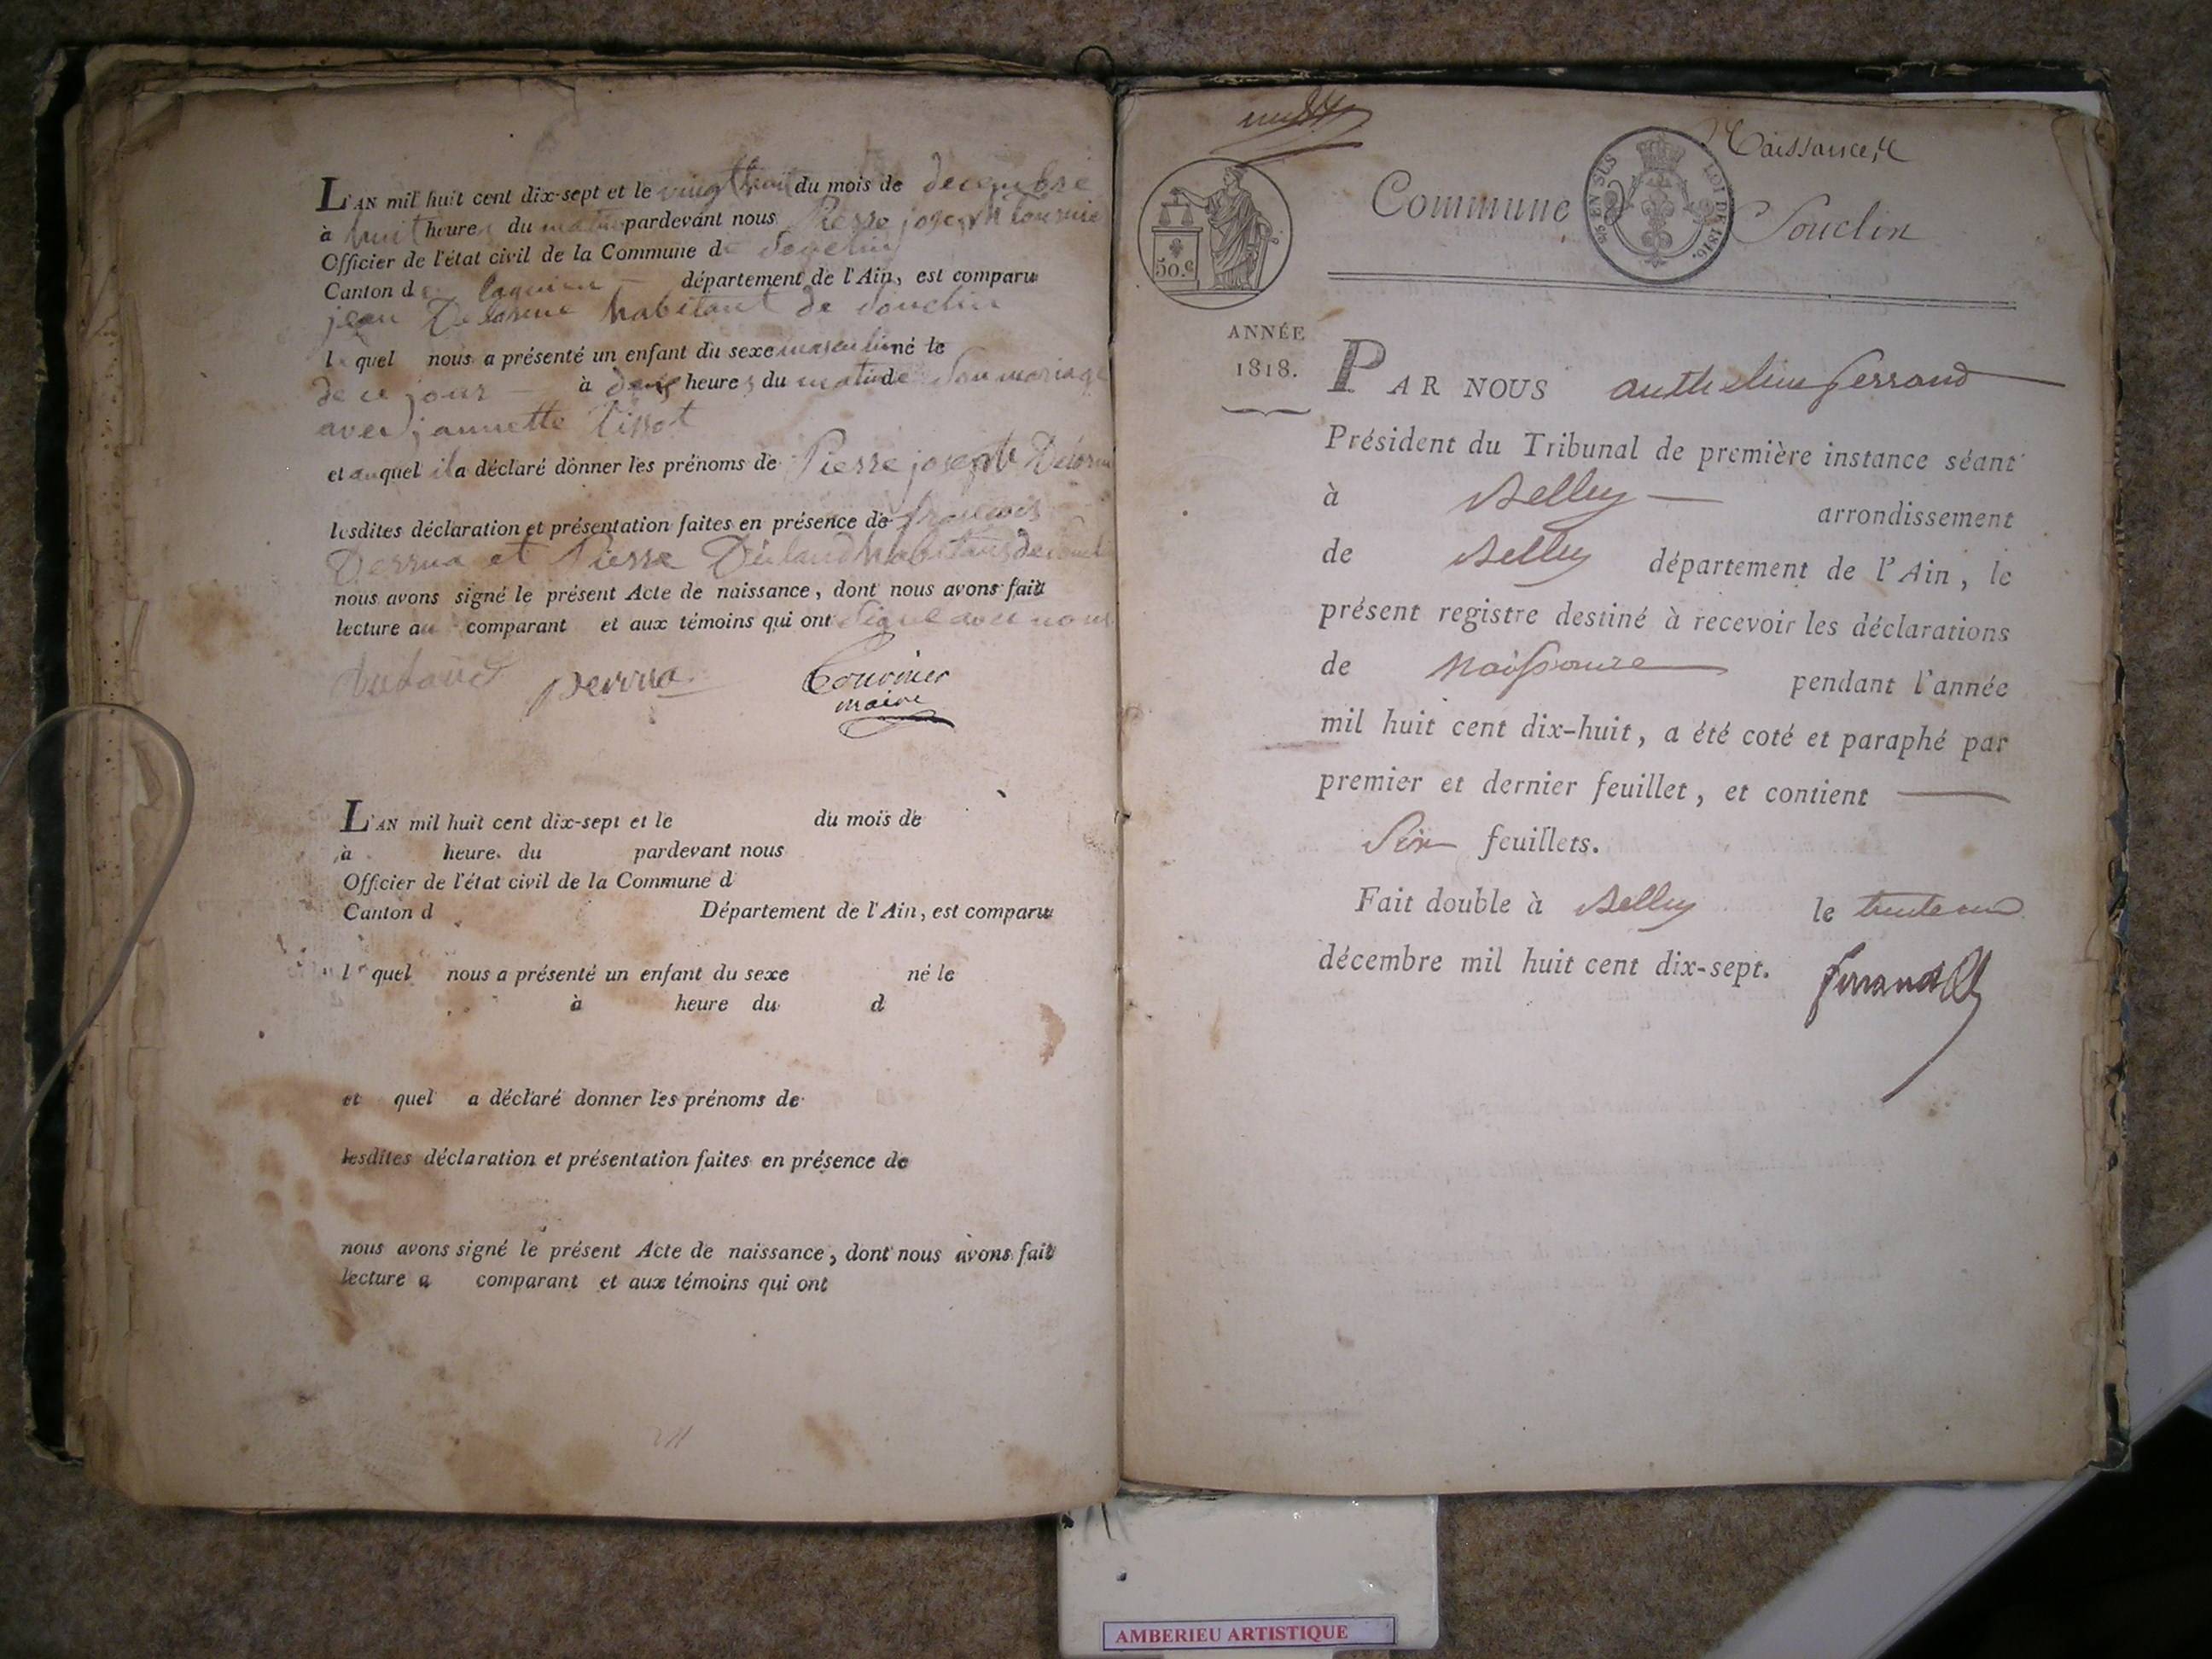 L'AN mil huit cent dix-sept et le vingt huit du mois de decembre
à huit heures du matin pardevant nous Pierre joseph tournie
Officier de l'état civil de la Commune de Souclin
Canton de lagnieu département de l'Ain, est comparu
jean Delorme habitant de Souclin
le quel nous a présenté un enfant du sexe masculin né le
de ce jour à heures du matin de son mariage
avec jannette Tissot
et auquel il a déclaré donner les prénoms de Pierre joseph Delorm
lesdites déclaration et présentation faites en présence de francois
Derrua et Pierre habitans de Soucl
nous avons signé le présent Acte de naissance, dont nous avons fait
lecture au comparant et aux témoins qui ont signé avec nous
derrua Tournier
maire
L'AN mil huit cent dix-sept et le du mois de
à heure du pardevant nous
Officier de l'état civil de la Commune d
Canton d Département de l'Ain, est comparu
l quel nous a présenté un enfant du sexe né le
à heure du d
et quel a déclaré donner les prénoms de
lesdites déclaration et présentation faites en présence de
nous avons signé le présent Acte de naissance, dont nous avons fait
lecture a comparant et aux témoins qui ont
Naissance
Commune Souclin
EN SUS LOI DE 1816.
50.c
ANNÉE
1818.
PAR NOUS anthelme ferrand
Président du Tribunal de première instance séant
à Belley arrondissement
de Belley département de l'Ain, le
présent registre destiné à recevoir les déclarations
de Naissance pendant l'année
mil huit cent dix-huit, a été coté et paraphé par
premier et dernier feuillet, et contient
Six feuillets.
Fait double à Belley le trente un
décembre mil huit cent dix-sept. ferrand
AMBERIEU ARTISTIQUE